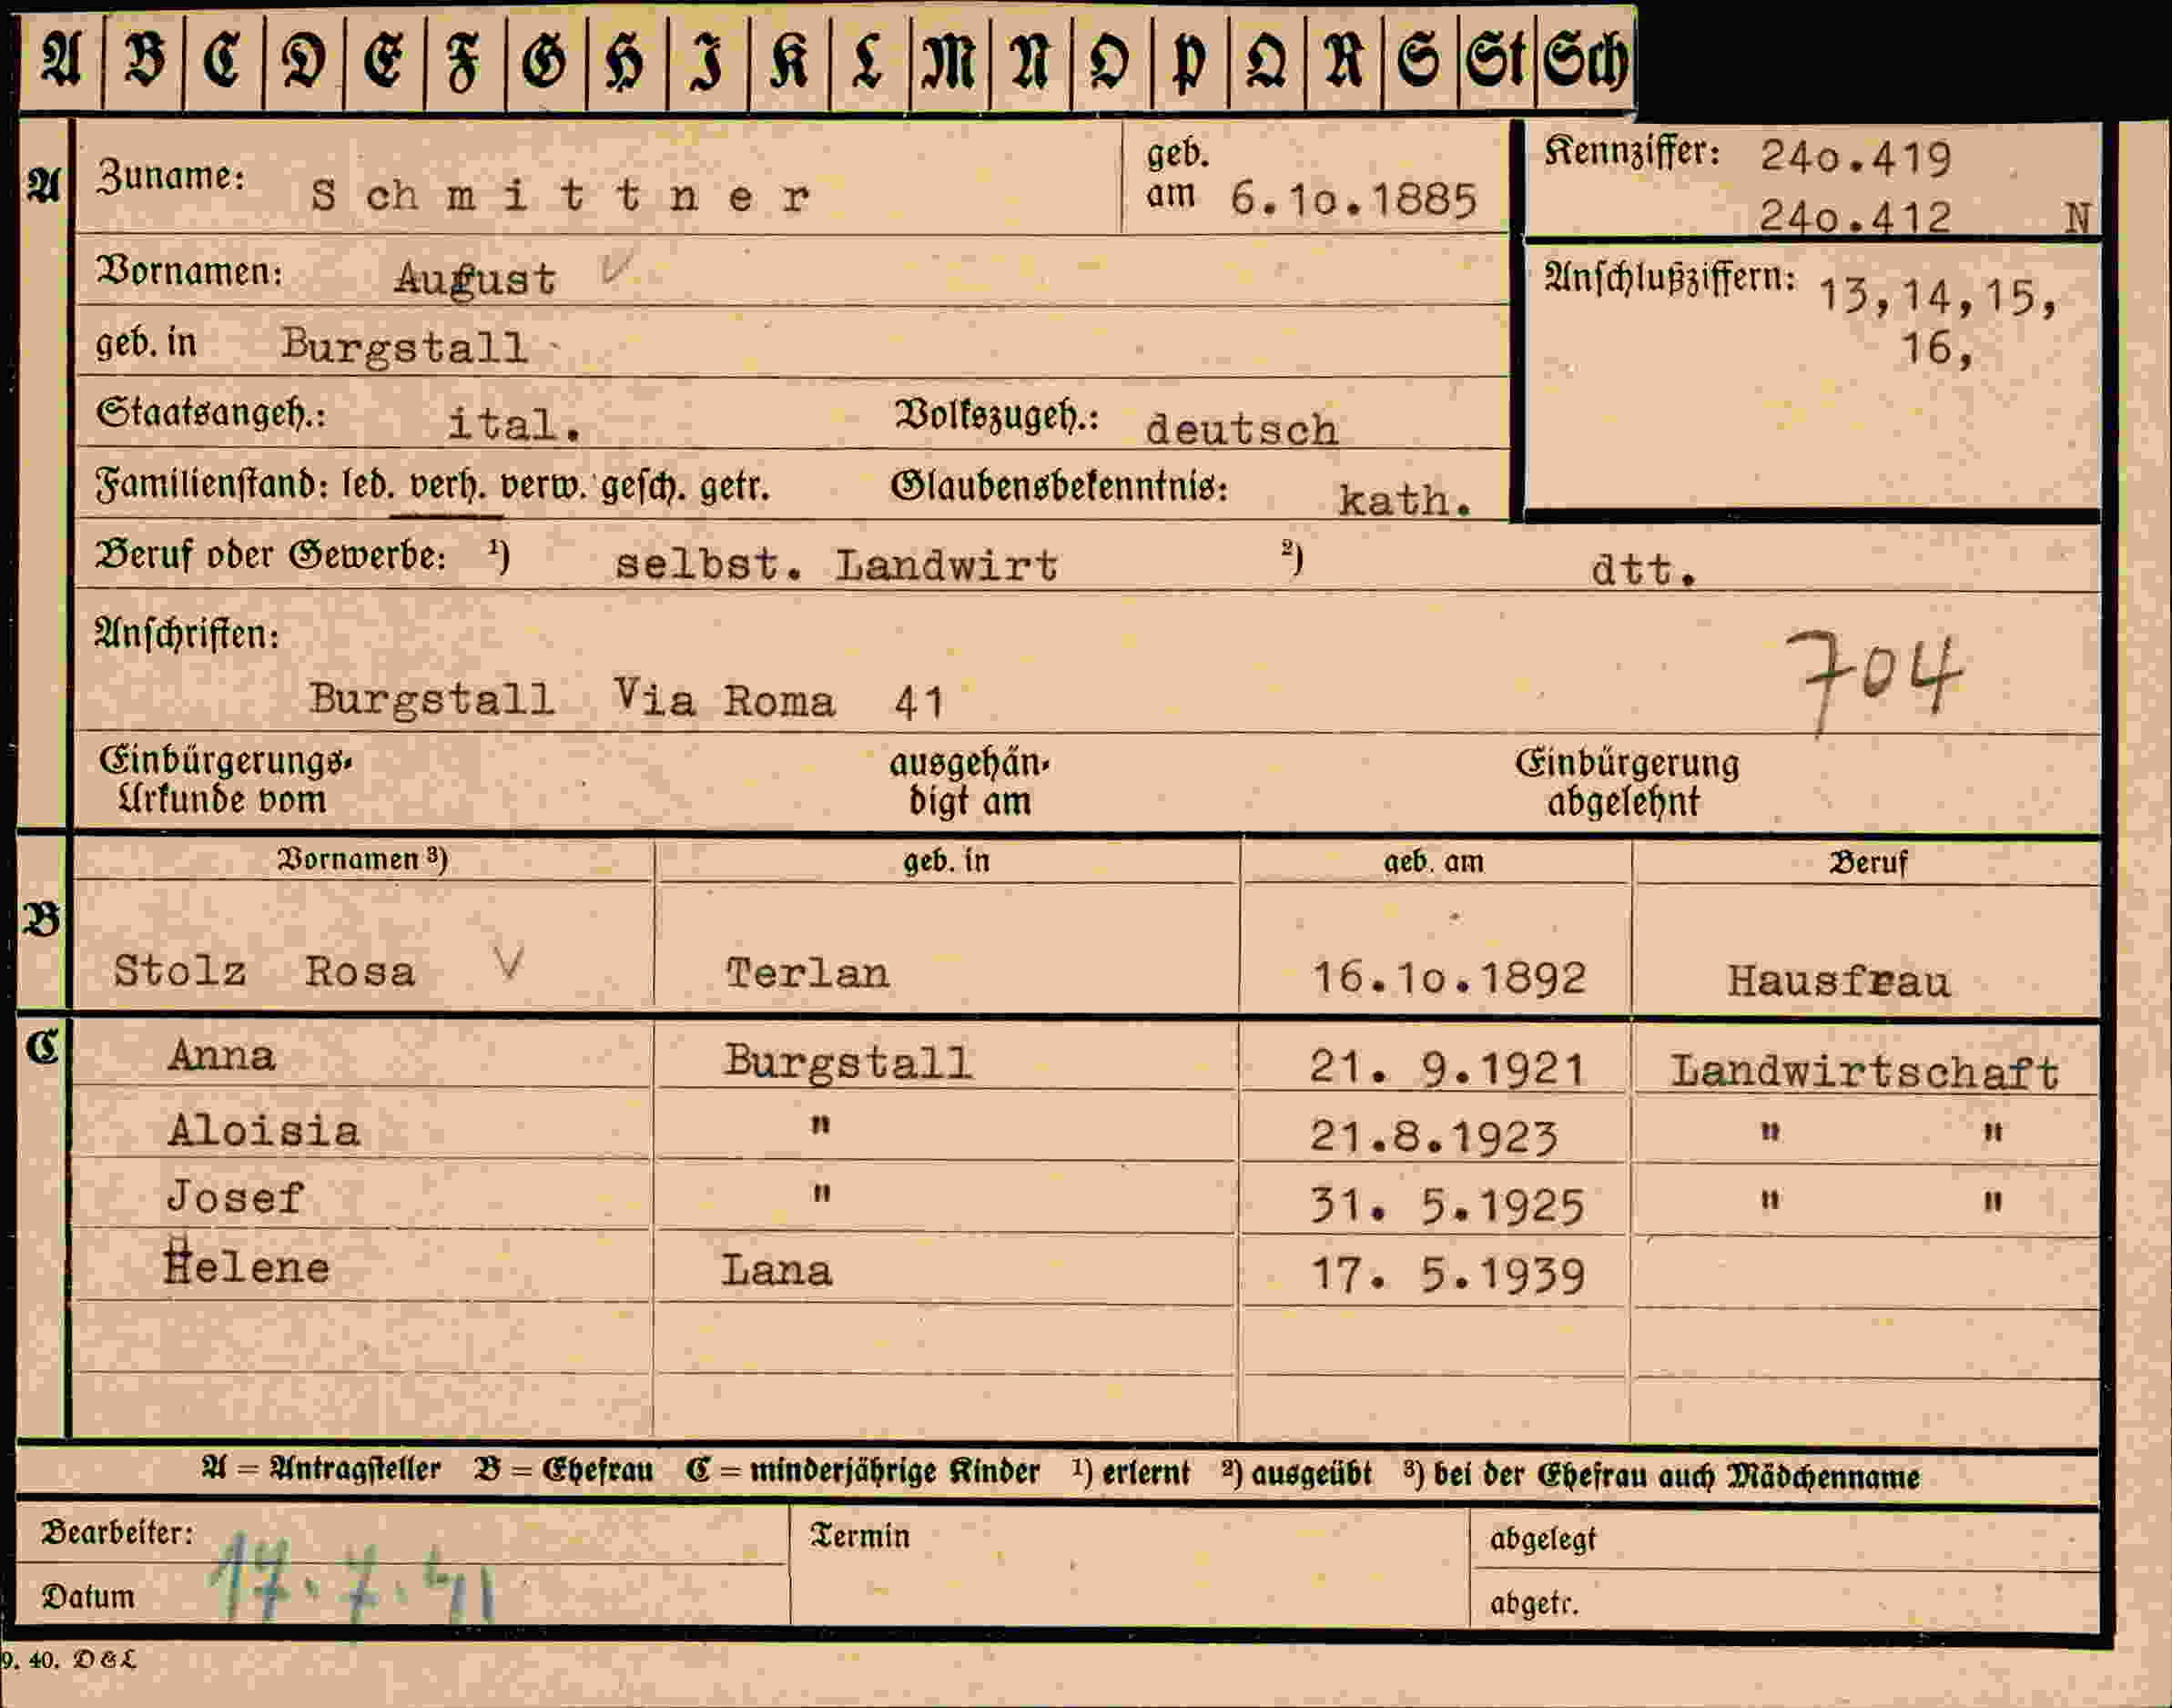 A B C D E F G H I K L M N O P Q R S St Sch
A Zuname: Schmittner geb. am 6.10.1885
Kennziffer: 240.419
240.412 N
Vornamen: August V
Anschlußziffern: 13,14,15,
16,
geb. in Burgstall
Staatsangeh.: ital. Volkszugeh.: deutsch
Familienstand: led. verh. verw. gesch. getr. Glaubensbekenntnis: kath.
Beruf oder Gewerbe: ¹) selbst. Landwirt ²) dtt.
Anschriften:
704
Burgstall Via Roma 41
Einbürgerungs-Urkunde vom ausgehändigt am Einbürgerung abgelehnt
Vornamen ³) geb. in geb. am Beruf
B
Stolz Rosa V Terlan 16.10.1892 Hausfrau
C Anna Burgstall 21. 9.1921 Landwirtschaft
Aloisia " 21.8.1923 " "
Josef " 31. 5.1925 " "
Helene Lana 17. 5.1939
A = Antragsteller B = Ehefrau C = minderjährige Kinder ¹) erlernt ²) ausgeübt ³) bei der Ehefrau auch Mädchenname
Bearbeiter: Termin abgelegt
Datum 17.7.41 abgetr.
9. 40. D&L